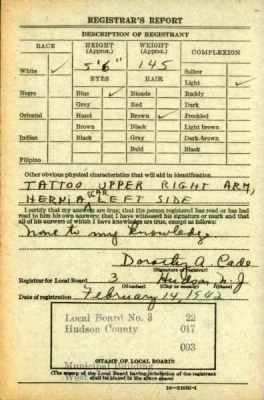 REGISTRAR'S REPORT
DESCRIPTION OF REGISTRANT
RACE HEIGHT (Approx.) WEIGHT (Approx.) COMPLEXION
5'6" 145 Sallow
White ✓ EYES HAIR Light ✓
Negro Blue ✓ Blonde Ruddy
Gray Red Dark
Oriental Hazel Brown ✓ Freckled
Brown Black Light brown
Indian Black Gray Dark brown
Bald Black
Filipino
Other obvious physical characteristics that will aid in identification
TATTOO UPPER RIGHT ARM,
SCAR
HERNIA LEFT SIDE
I certify that my answers are true; that the person registered has read or has had
read to him his own answers; that I have witnessed his signature or mark and that
all of his answers of which I have knowledge are true, except as follows:
None to my knowledge
Dorothy A. Cade
(Signature of registrar)
Registrar for Local Board 3 Hudson N.J
(Number) (City or county) (State)
Date of registration February 14, 1942
Local Board No. 3 22
Hudson County 017
003
Municipal Building
West
(STAMP OF LOCAL BOARD)
(The stamp of the Local Board having jurisdiction of the registrant
shall be placed in the above space)
16-21630-1